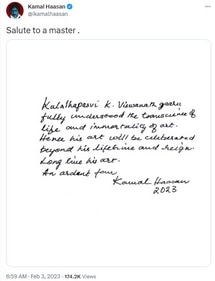 Kamal Haasan
@ikamalhaasan
Salute to a master .
Kalathapasvi K. Viswanath gaaru
fully understood the transcience of
life and immortality of art.
Hence his art will be celebrated
beyond his lifetime and reign.
Long live his art.
An ardent fan,
Kamal Haasan
2023
6:59 AM · Feb 3, 2023 · 174.2K Views